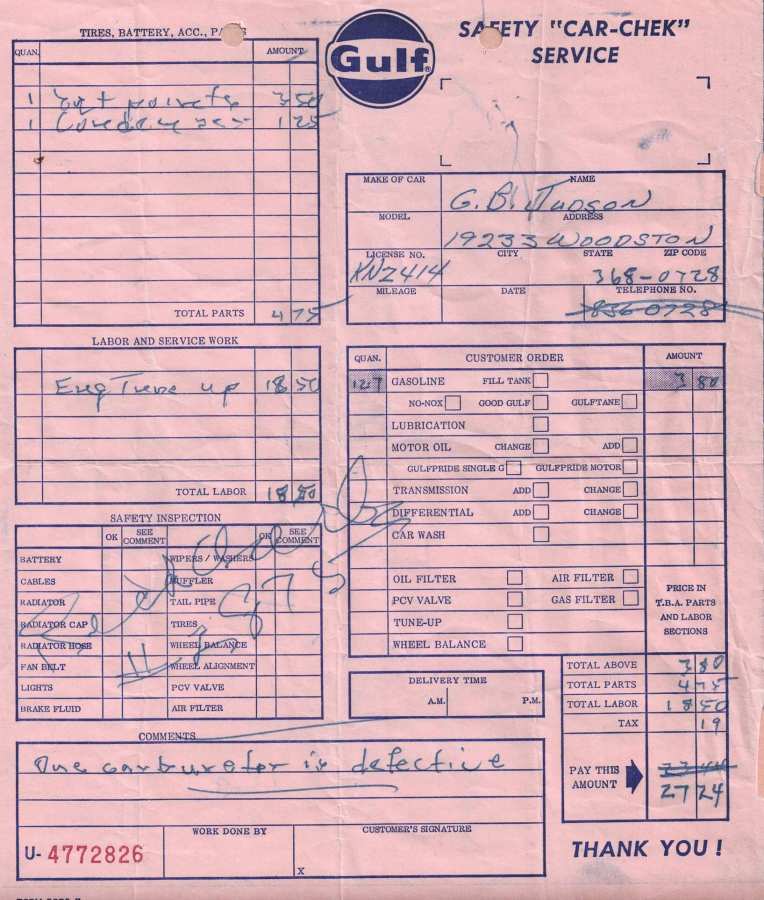 TIRES, BATTERY, ACC., PARTS
QUAN. AMOUNT
1 Set points 3 50
1 Condenser 1 25
TOTAL PARTS 4 75
Gulf ®
SAFETY "CAR-CHEK"
SERVICE
MAKE OF CAR NAME
G. B. Judson
MODEL ADDRESS
19233 WOODSTON
LICENSE NO. CITY STATE ZIP CODE
XNZ414 368-0728
MILEAGE DATE TELEPHONE NO.
836-0728
LABOR AND SERVICE WORK
Eng Tune up 18 50
TOTAL LABOR 18 50
QUAN. CUSTOMER ORDER AMOUNT
127 GASOLINE FILL TANK 3 80
NO-NOX GOOD GULF GULFTANE
LUBRICATION
MOTOR OIL CHANGE ADD
GULFPRIDE SINGLE G GULFPRIDE MOTOR
TRANSMISSION ADD CHANGE
DIFFERENTIAL ADD CHANGE
CAR WASH
OIL FILTER AIR FILTER
PCV VALVE GAS FILTER
TUNE-UP
WHEEL BALANCE
PRICE IN
T.B.A. PARTS
AND LABOR
SECTIONS
SAFETY INSPECTION
OK SEE COMMENT OK SEE COMMENT
BATTERY WIPERS / WASHERS
CABLES MUFFLER
RADIATOR TAIL PIPE
RADIATOR CAP TIRES
RADIATOR HOSE WHEEL BALANCE
FAN BELT WHEEL ALIGNMENT
LIGHTS PCV VALVE
BRAKE FLUID AIR FILTER
DELIVERY TIME
A.M. P.M.
TOTAL ABOVE 3 80
TOTAL PARTS 4 75
TOTAL LABOR 18 50
TAX 19
PAY THIS
AMOUNT
27 24
COMMENTS
One carburetor is defective
U- 4772826
WORK DONE BY
CUSTOMER'S SIGNATURE
X
THANK YOU!